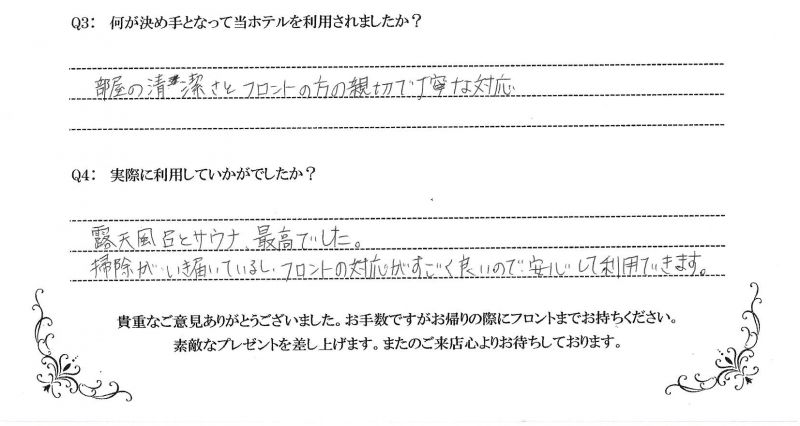 Q3: 何が決め手となって当ホテルを利用されましたか?
部屋の清潔さとフロントの方の親切で丁寧な対応
Q4: 実際に利用していかがでしたか?
露天風呂とサウナ、最高でした。
掃除がいき届いているし、フロントの対応がすごく良いので、安心して利用できます。
貴重なご意見ありがとうございました。お手数ですがお帰りの際にフロントまでお持ちください。
素敵なプレゼントを差し上げます。またのご来店心よりお待ちしております。